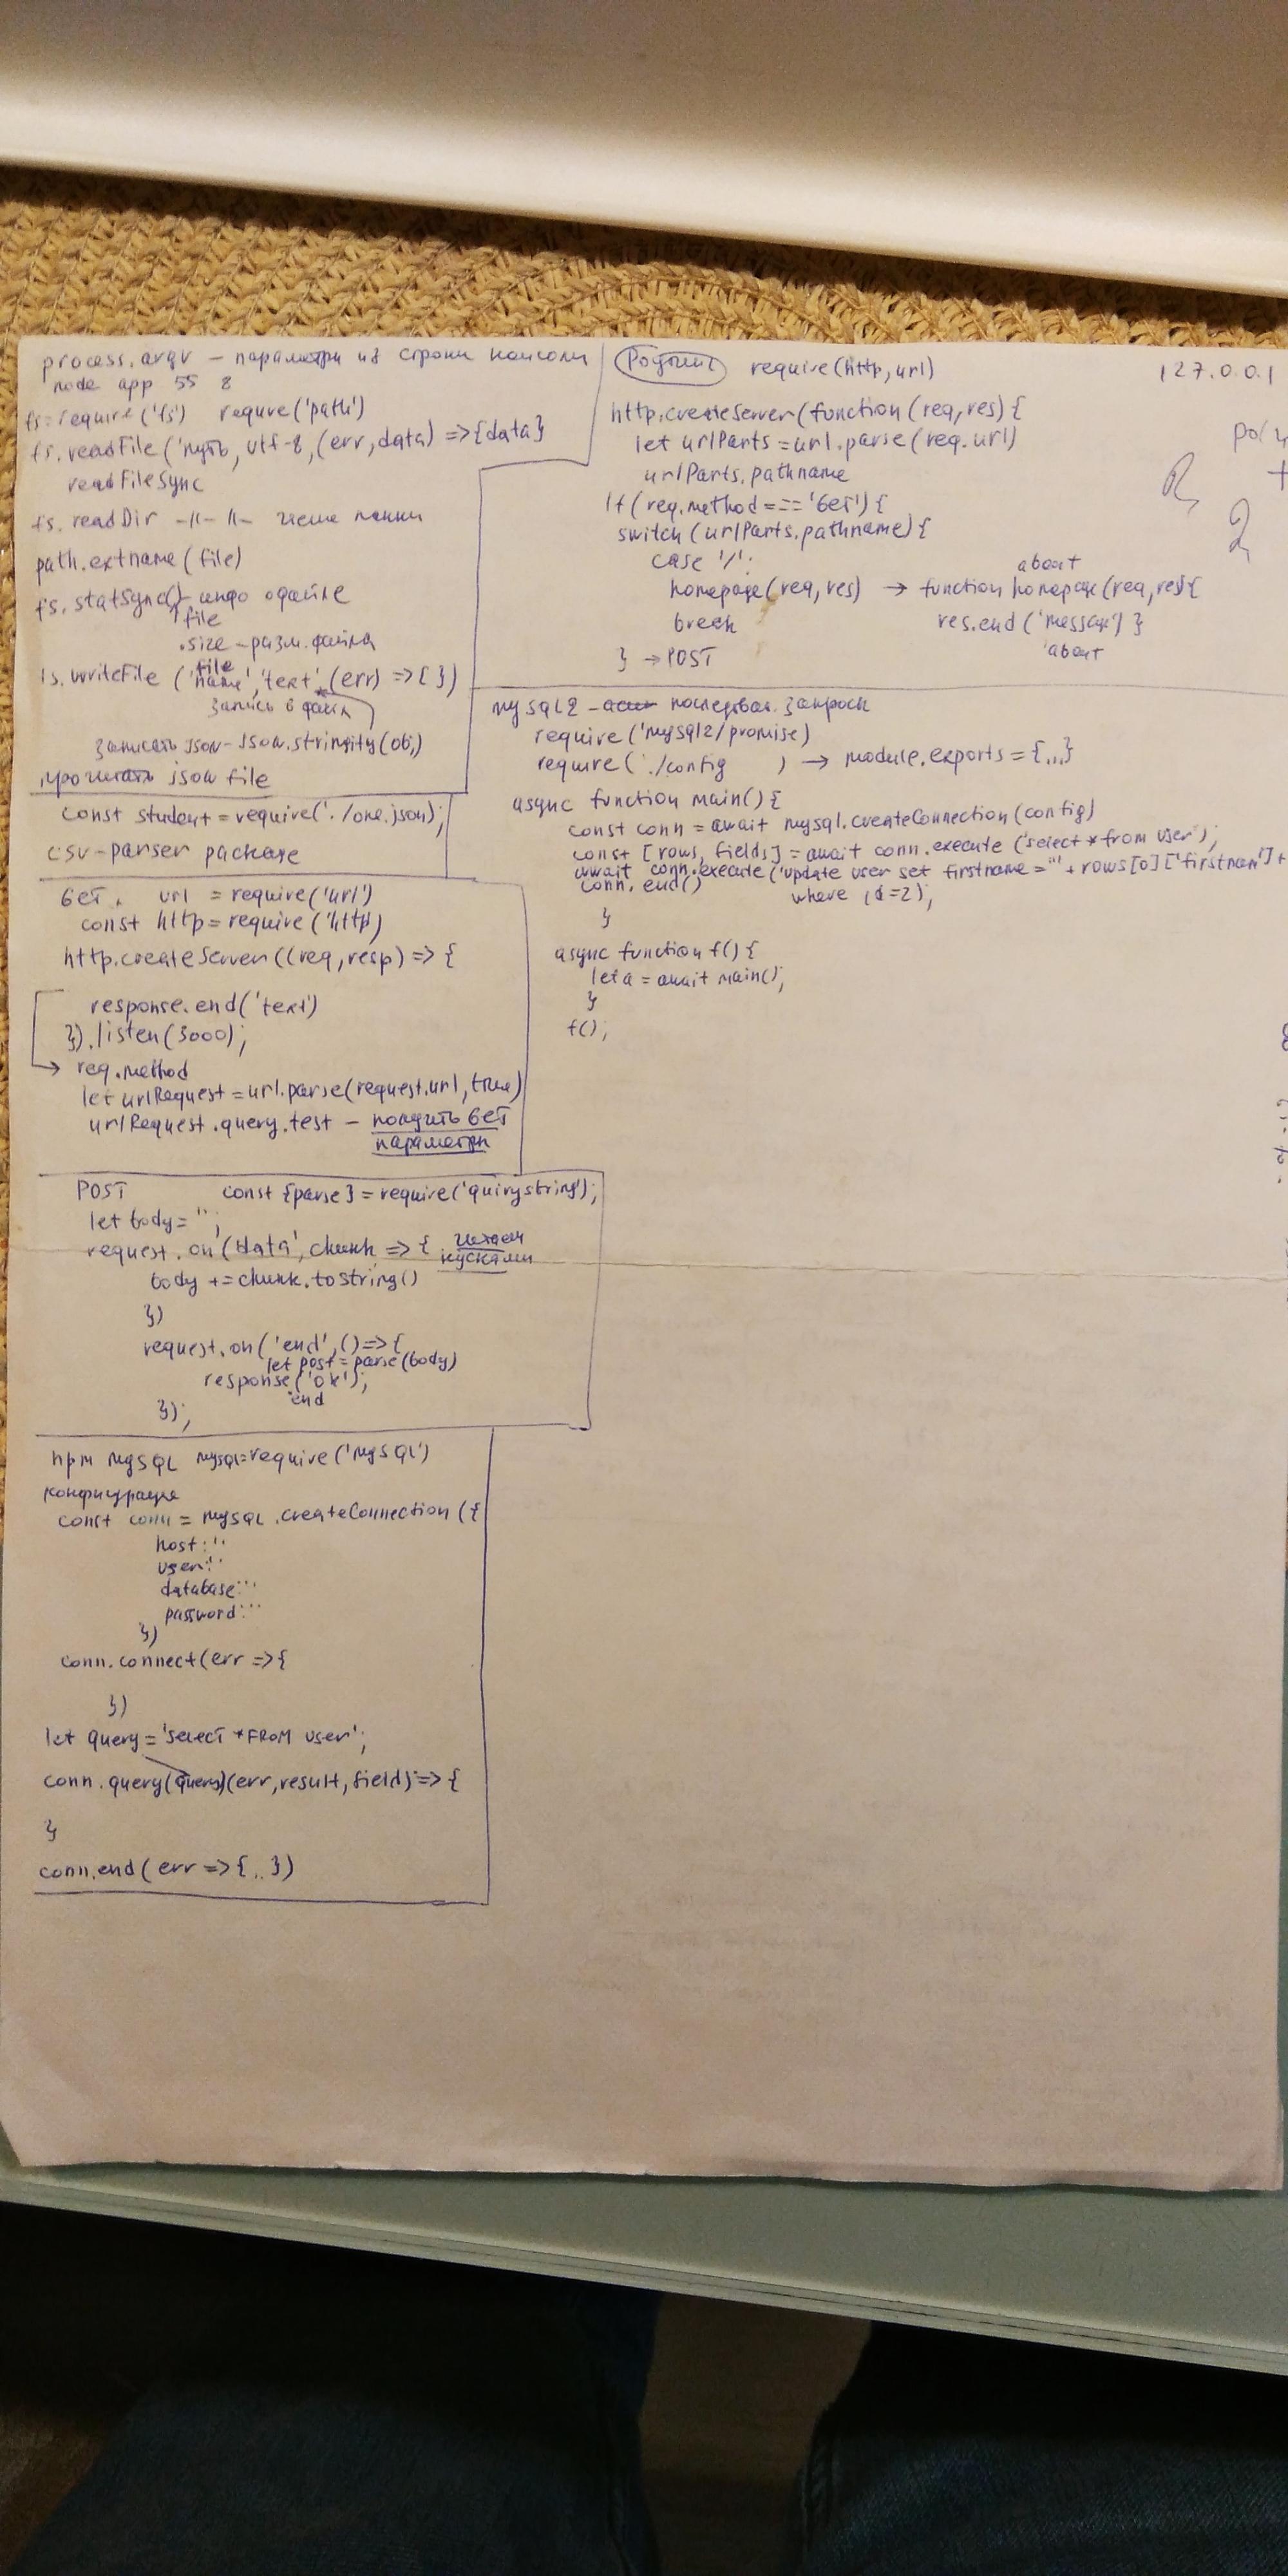 process.argv – параметри из строки консоли
node app 55 8
fs=require('fs') requre('path')
fs.readFile('путь, utf-8, (err,data) =>{data}
readFileSync
fs.readDir -11- 11-
path.extname(file)
fs.statSync() – инфо о файле
file
.size – разм. файла
fs.writeFile ('name', 'text', (err) =>{ })
file
запись в файл
записать json – json.stringify(obj)
прочитать json file
const student = require('./one.json);
csv-parser package
GET. url = require('url')
const http = require('http')
http.createServer((req,resp) => {
response.end('text')
}).listen(3000);
req.method
let urlRequest = url.parse(request.url, true)
urlRequest.query.test – получить GET
параметри
POST const {parse} = require('quirystring');
let body = '';
request.on('data', chunk => { читаем
кусками
body += chunk.toString()
})
request.on('end', () => {
let post = parse(body)
response('ok');
.end
});
npm MySQL mysql=require('MySQL')
конфигурация
const conn = MySQL.createConnection({
host: ''
user: ''
database: ''
password: ''
})
conn.connect(err => {
})
let query = 'SELECT * FROM user';
conn.query(query)(err, result, field) => {
}
conn.end( err => {..})
Роутинг require(http, url)
127.0.0.1
http.createServer(function(req, res) {
let urlParts = url.parse(req.url)
urlParts.pathname
if(req.method === 'GET') {
switch(urlParts.pathname) {
case '/':
about
homepage(req, res) → function homepage(req, res){
break
res.end('message') }
about
} → POST
MySQL2 – последоват. запросы
require('mysql2/promise)
require('./config ) → module.exports = {...}
async function main() {
const conn = await mysql.createConnection(config)
const [rows, fields] = await conn.execute('select * from user');
await conn.execute('update user set firstname = "' + rows[0]['firstnam'] +
conn.end() where id=2);
}
async function f() {
let a = await main();
}
f();